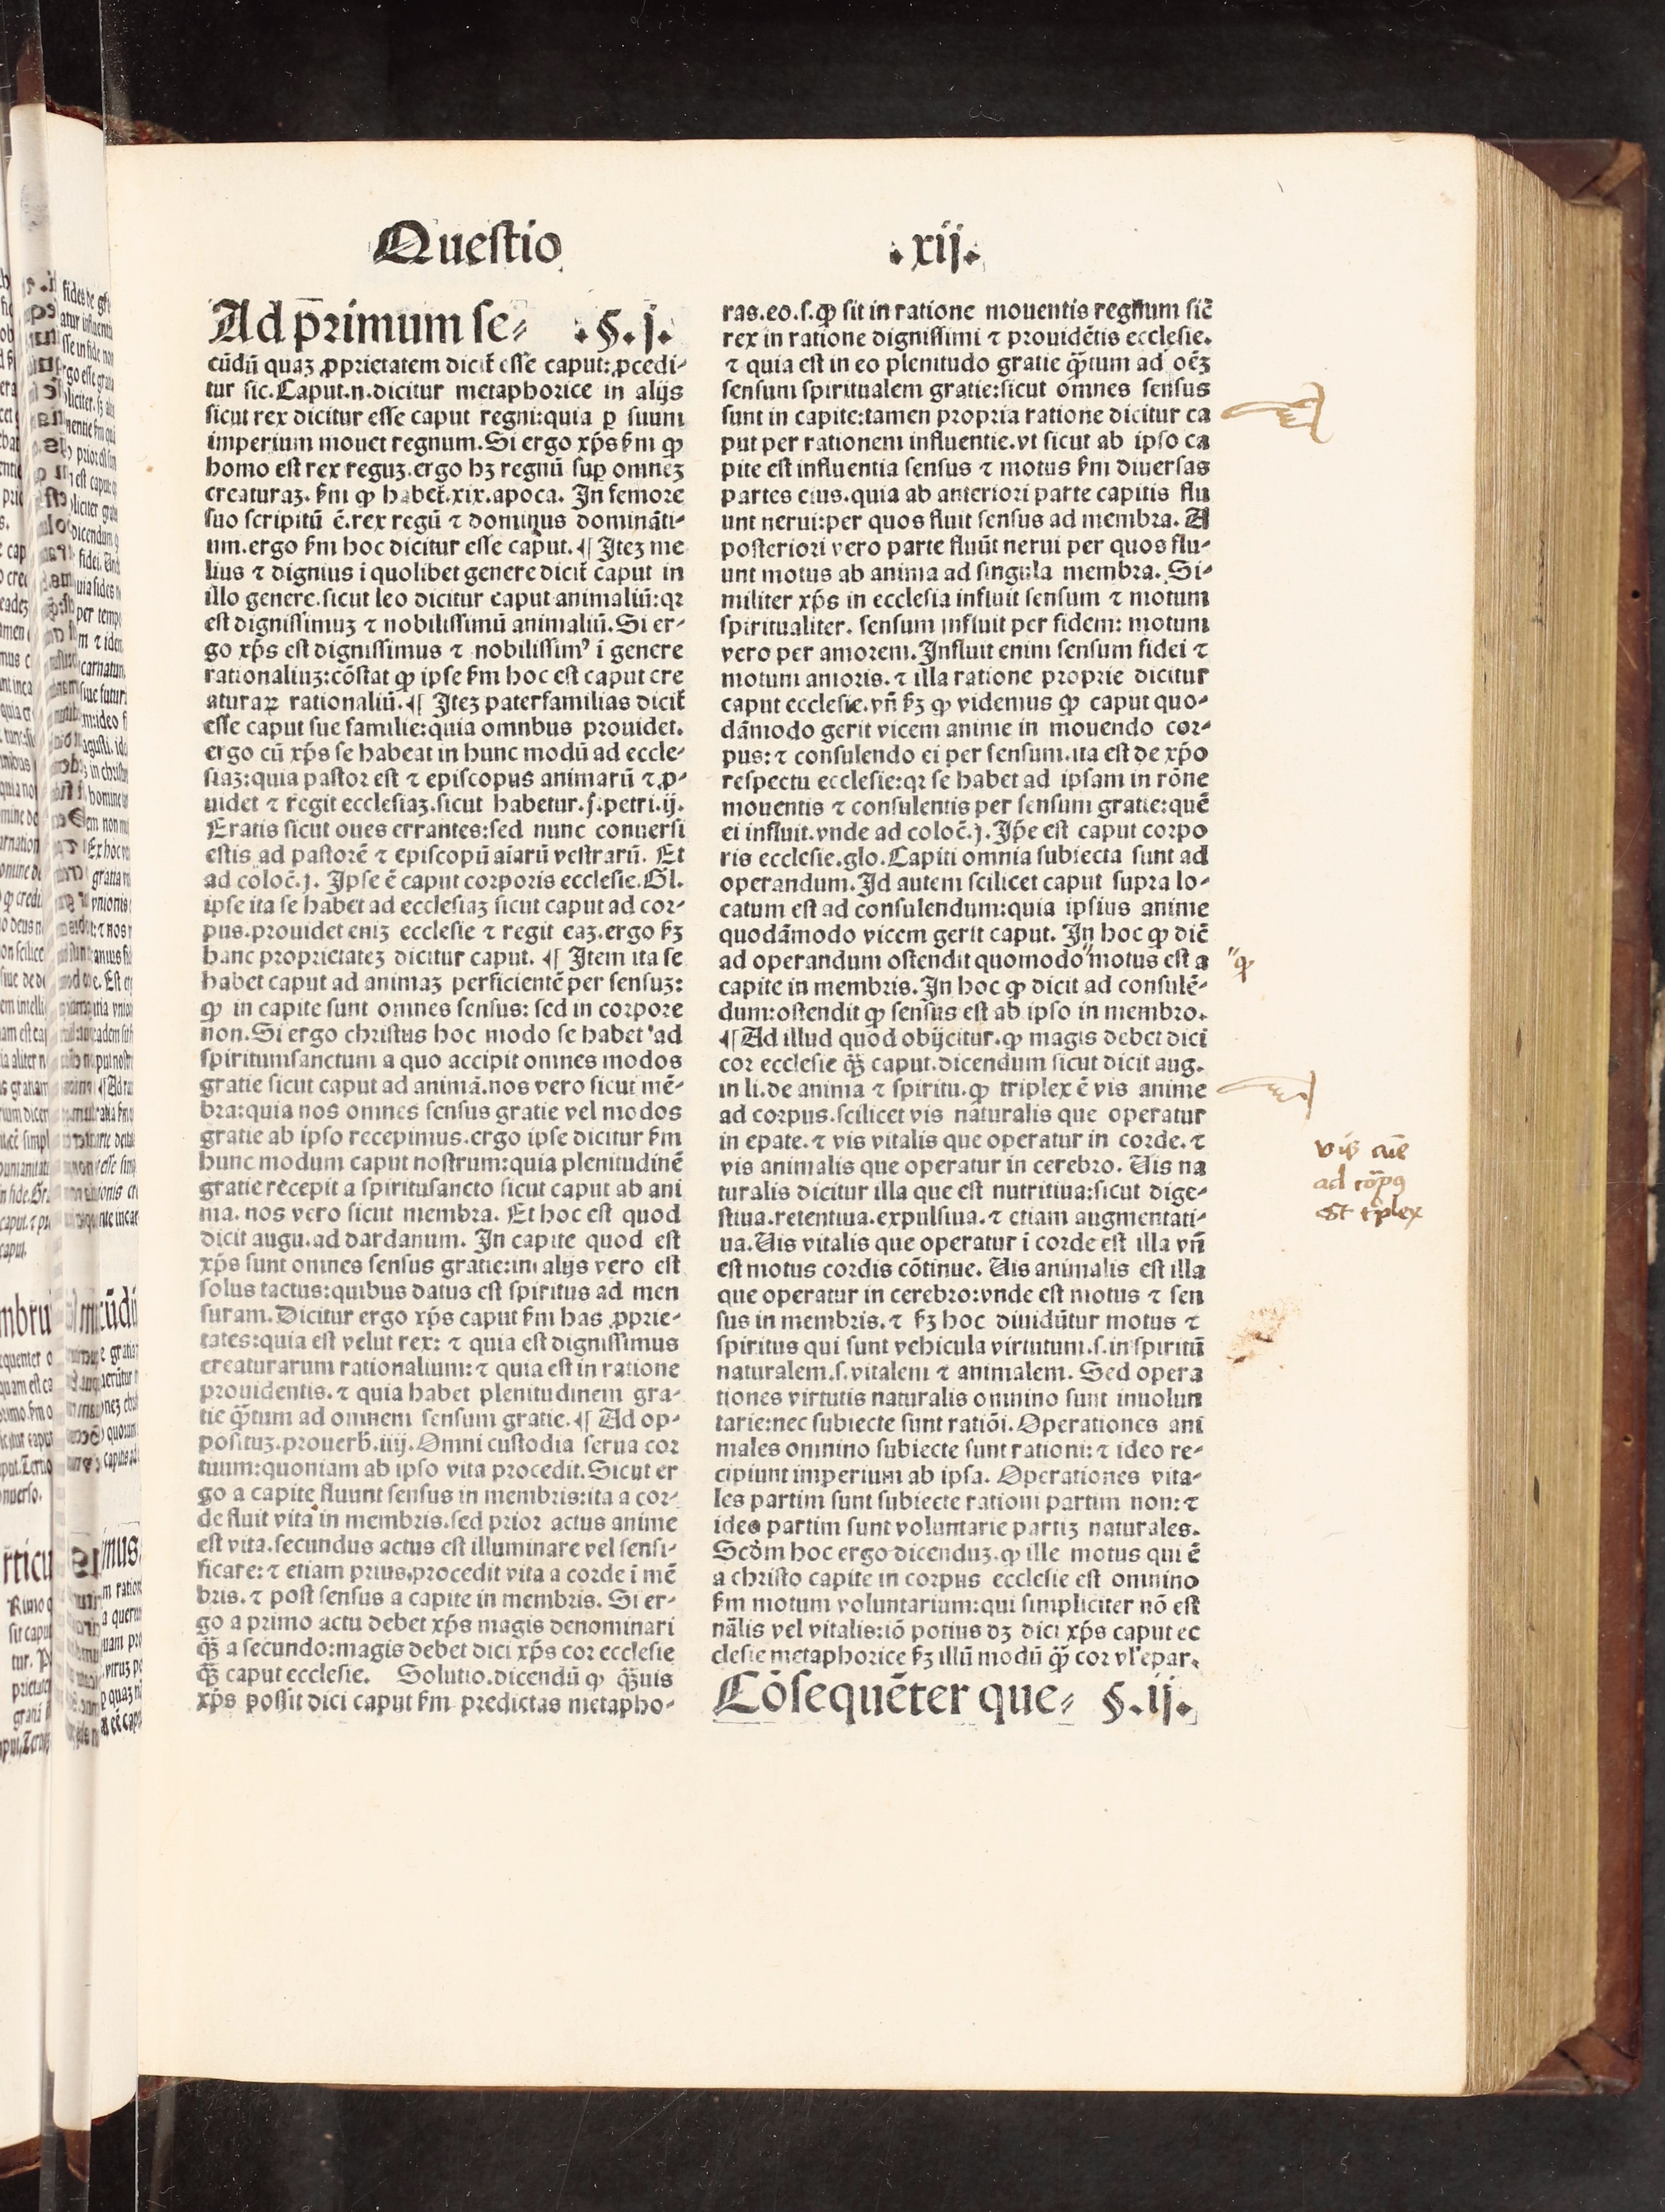 Questio .xij.
Ad p̄rimum se⸗ .§.j.
cūdū quaꝫ ꝓprietatem dicit̄ esse caput: ꝓcedi-
tur sic. Caput.n.dicitur metaphorice in alijs
sicut rex dicitur esse caput regni:quia ꝑ suum
imperium mouet regnum. Si ergo xp̄s ẜm ꝙ
homo est rex reguꝫ.ergo hꝫ regnū suꝑ omneꝫ
creaturaꝫ. ẜm ꝙ habet̄.xix.apoca. In femore
suo scripitū ē.rex regū ⁊ dominus domināti-
um.ergo ẜm hoc dicitur esse caput. ¶ Iteꝫ me
lius ⁊ dignius i quolibet genere dicit̄ caput in
illo genere.sicut leo dicitur caput animaliū:qꝛ
est dignissimuꝫ ⁊ nobilissimū animaliū. Si er-
go xp̄s est dignissimus ⁊ nobilissimꝰ i genere
rationaliuꝫ:cōstat ꝙ ipse ẜm hoc est caput cre
aturaꝝ rationaliū. ¶ Iteꝫ paterfamilias dicit̄
esse caput sue familie:quia omnbus prouidet.
ergo cū xp̄s se habeat in hunc modū ad eccle-
siaꝫ:quia pastor est ⁊ episcopus animarū ⁊ ꝓ-
uidet ⁊ regit ecclesiaꝫ.sicut habetur.j.petri.ij.
Eratis sicut oues errantes:sed nunc conuersi
estis ad pastorē ⁊ episcopū aiarū vestrarū. Et
ad coloc̄.j. Ipse ē caput corporis ecclesie. Gl.
ipse ita se habet ad ecclesiaꝫ sicut caput ad cor-
pus.prouidet eniꝫ ecclesie ⁊ regit eaꝫ.ergo ẜꝫ
hanc proprietateꝫ dicitur caput. ¶ Item ita se
habet caput ad animaꝫ perficientē per sensuꝫ:
ꝙ in capite sunt omnes sensus: sed in corpore
non. Si ergo christus hoc modo se habet ad
spiritumsanctum a quo accipit omnes modos
gratie sicut caput ad animā.nos vero sicut mē-
bra:quia nos omnes sensus gratie vel modos
gratie ab ipso recepimus.ergo ipse dicitur ẜm
hunc modum caput nostrum:quia plenitudinē
gratie recepit a spiritusancto sicut caput ab ani
ma. nos vero sicut membra. Et hoc est quod
dicit augu.ad dardanum. In capite quod est
xp̄s sunt omnes sensus gratie:in alijs vero est
solus tactus:quibus datus est spiritus ad men
suram. Dicitur ergo xp̄s caput ẜm has ꝓprie-
tates:quia est velut rex: ⁊ quia est dignissimus
creaturarum rationalium:⁊ quia est in ratione
prouidentis. ⁊ quia habet plenitudinem gra-
tie qͣꝫtum ad omnem sensum gratie. ¶ Ad op-
posituꝫ.prouerb̄.iiij. Omni custodia serua cor
tuum:quoniam ab ipso vita procedit. Sicut er
go a capite fluunt sensus in membris:ita a cor-
de fluit vita in membris.sed prior actus anime
est vita.secundus actus est illuminare vel sensi-
ficare:⁊ etiam prius procedit vita a corde i mē
bris. ⁊ post sensus a capite in membris. Si er-
go a primo actu debet xp̄s magis denominari
qͣꝫ a secundo:magis debet dici xp̄s cor ecclesie
qͣꝫ caput ecclesie. Solutio.dicendū ꝙ qͣꝫuis
xp̄s possit dici caput ẜm predictas metapho-
ras.eo.s.ꝙ sit in ratione mouentis regnum sic̄
rex in ratione dignissimi ⁊ prouidētis ecclesie.
⁊ quia est in eo plenitudo gratie qͣꝫtum ad oēꝫ
sensum spiritualem gratie:sicut omnes sensus
sunt in capite:tamen propria ratione dicitur ca
put per rationem influentie.vt sicut ab ipso ca
pite est influentia sensus ⁊ motus ẜm diuersas
partes eius.quia ab anteriori parte capitis flu
unt nerui:per quos fluit sensus ad membra. A
posteriori vero parte fluūt nerui per quos flu-
unt motus ab anima ad singula membra. Si-
militer xp̄s in ecclesia influit sensum ⁊ motum
spiritualiter. sensum influit per fidem: motum
vero per amorem. Influit enim sensum fidei ⁊
motum amoris. ⁊ illa ratione proprie dicitur
caput ecclesie.vn̄ ẜꝫ ꝙ videmus ꝙ caput quo-
dāmodo gerit vicem anime in mouendo cor-
pus: ⁊ consulendo ei per sensum.ita est de xp̄o
respectu ecclesie:qꝛ se habet ad ipsam in rōne
mouentis ⁊ consulentis per sensum gratie:quē
ei influit.vnde ad coloc̄.j. Ip̄e est caput corpo
ris ecclesie.glo. Capiti omnia subiecta sunt ad
operandum. Id autem scilicet caput supra lo-
catum est ad consulendum:quia ipsius anime
quodāmodo vicem gerit caput. In hoc ꝙ dic̄
ad operandum ostendit quomodo"motus est a
capite in membris. In hoc ꝙ dicit ad consulē-
dum:ostendit ꝙ sensus est ab ipso in membro.
¶ Ad illud quod obijcitur.ꝙ magis debet dici
cor ecclesie qͣꝫ caput.dicendum sicut dicit aug.
in li.de anima ⁊ spiritu.ꝙ triplex ē vis anime
ad corpus.scilicet vis naturalis que operatur
in epate. ⁊ vis vitalis que operatur in corde. ⁊
vis animalis que operatur in cerebro. Uis na
turalis dicitur illa que est nutritiua:sicut dige-
stiua.retentiua.expulsiua. ⁊ etiam augmentati-
ua. Uis vitalis que operatur i corde est illa vn̄
est motus cordis cōtinue. Uis animalis est illa
que operatur in cerebro:vnde est motus ⁊ sen
sus in membris. ⁊ ẜꝫ hoc diuidūtur motus ⁊
spiritus qui sunt vehicula virtutum.s.in spiritū
naturalem.s.vitalem ⁊ animalem. Sed opera
tiones virtutis naturalis omnino sunt inuolun
tarie:nec subiecte sunt ratiōi. Operationes ani
males omnino subiecte sunt rationi: ⁊ ideo re-
cipiunt imperium ab ipsa. Operationes vita-
les partim sunt subiecte rationi partim non: ⁊
ideo partim sunt voluntarie partiꝫ naturales.
Scd̄m hoc ergo dicenduꝫ.ꝙ ille motus qui ē
a christo capite in corpus ecclesie est omnino
ẜm motum voluntarium:qui simpliciter nō est
nālis vel vitalis:iō potius dꝫ dici xp̄s caput ec
clesie metaphorice ẜꝫ illū modū qͣꝫ cor vl̓ epar.
Cōsequēter que⸗ §.ij.
"ꝙ
vis aīe
ad corpꝰ
est triplex